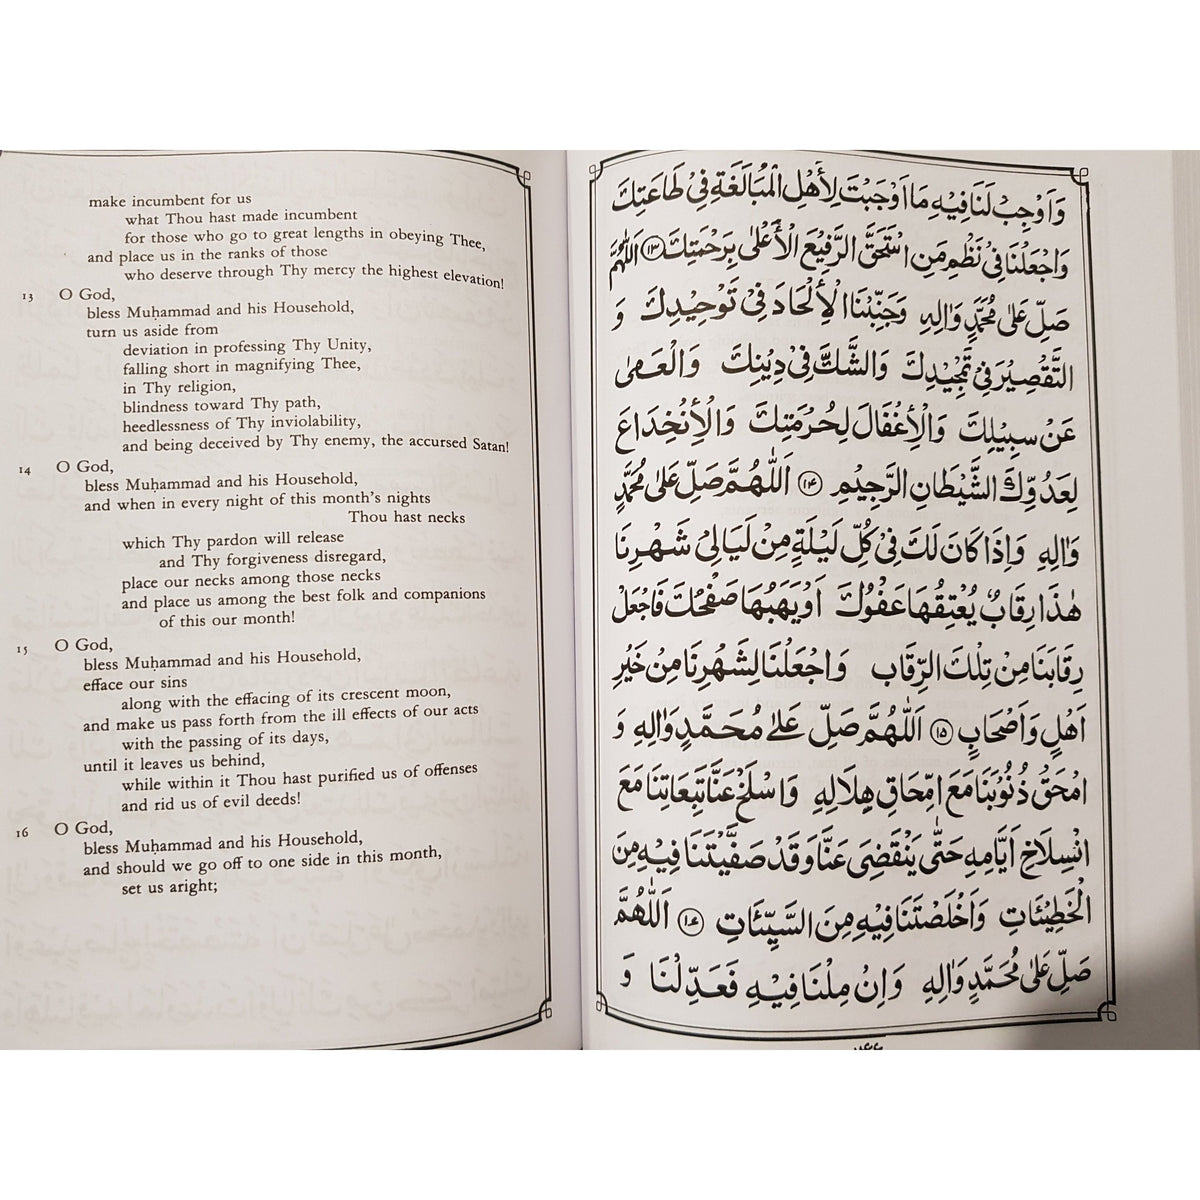 make incumbent for us
what Thou hast made incumbent
for those who go to great lengths in obeying Thee,
and place us in the ranks of those
who deserve through Thy mercy the highest elevation!
13 O God,
bless Muḥammad and his Household,
turn us aside from
deviation in professing Thy Unity,
falling short in magnifying Thee,
in Thy religion,
blindness toward Thy path,
heedlessness of Thy inviolability,
and being deceived by Thy enemy, the accursed Satan!
14 O God,
bless Muḥammad and his Household,
and when in every night of this month's nights
Thou hast necks
which Thy pardon will release
and Thy forgiveness disregard,
place our necks among those necks
and place us among the best folk and companions
of this our month!
15 O God,
bless Muḥammad and his Household,
efface our sins
along with the effacing of its crescent moon,
and make us pass forth from the ill effects of our acts
with the passing of its days,
until it leaves us behind,
while within it Thou hast purified us of offenses
and rid us of evil deeds!
16 O God,
bless Muḥammad and his Household,
and should we go off to one side in this month,
set us aright;
وَاَوْجِبْ لَنَا فِيْهِ مَا اَوْجَبْتَ لِأَهْلِ الْمُبَالَغَةِ فِيْ طَاعَتِكَ
وَاجْعَلْنَا فِيْ نَظْمِ مَنِ اسْتَحَقَّ الرَّفِيْعَ الْأَعْلٰى بِرَحْمَتِكَ ﴿۱۳﴾ اَللّٰهُمَّ
صَلِّ عَلٰى مُحَمَّدٍ وَاٰلِهِ وَجَنِّبْنَا الْأِلْحَادَ فِيْ تَوْحِيْدِكَ وَ
التَّقْصِيْرَ فِيْ تَمْجِيْدِكَ وَالشَّكَّ فِيْ دِيْنِكَ وَالْعَمٰى
عَنْ سَبِيْلِكَ وَالْأِغْفَالَ لِحُرْمَتِكَ وَالْأِنْخِدَاعَ
لِعَدُوِّكَ الشَّيْطَانِ الرَّجِيْمِ ﴿۱۴﴾ اَللّٰهُمَّ صَلِّ عَلٰى مُحَمَّدٍ
وَاٰلِهِ وَاِذَا كَانَ لَكَ فِيْ كُلِّ لَيْلَةٍ مِنْ لَيَالِيْ شَهْرِنَا
هٰذَا رِقَابٌ يُعْتِقُهَا عَفْوُكَ اَوْ يَهَبُهَا صَفْحُكَ فَاجْعَلْ
رِقَابَنَا مِنْ تِلْكَ الرِّقَابِ وَاجْعَلْنَا لِشَهْرِنَا مِنْ خَيْرِ
اَهْلٍ وَاَصْحَابٍ ﴿۱۵﴾ اَللّٰهُمَّ صَلِّ عَلٰى مُحَمَّدٍ وَاٰلِهِ وَ
امْحَقْ ذُنُوْبَنَا مَعَ امِّحَاقِ هِلَالِهِ وَاسْلَخْ عَنَّا تَبِعَاتِنَا مَعَ
انْسِلَاخِ اَيَّامِهِ حَتّٰى يَنْقَضِيَ عَنَّا وَقَدْ صَفَّيْتَنَا فِيْهِ مِنَ
الْخَطِيْئَاتِ وَاَخْلَصْتَنَا فِيْهِ مِنَ السَّيِّئَاتِ ﴿۱۶﴾ اَللّٰهُمَّ
صَلِّ عَلٰى مُحَمَّدٍ وَاٰلِهِ وَاِنْ مِلْنَا فِيْهِ فَعَدِّلْنَا وَ